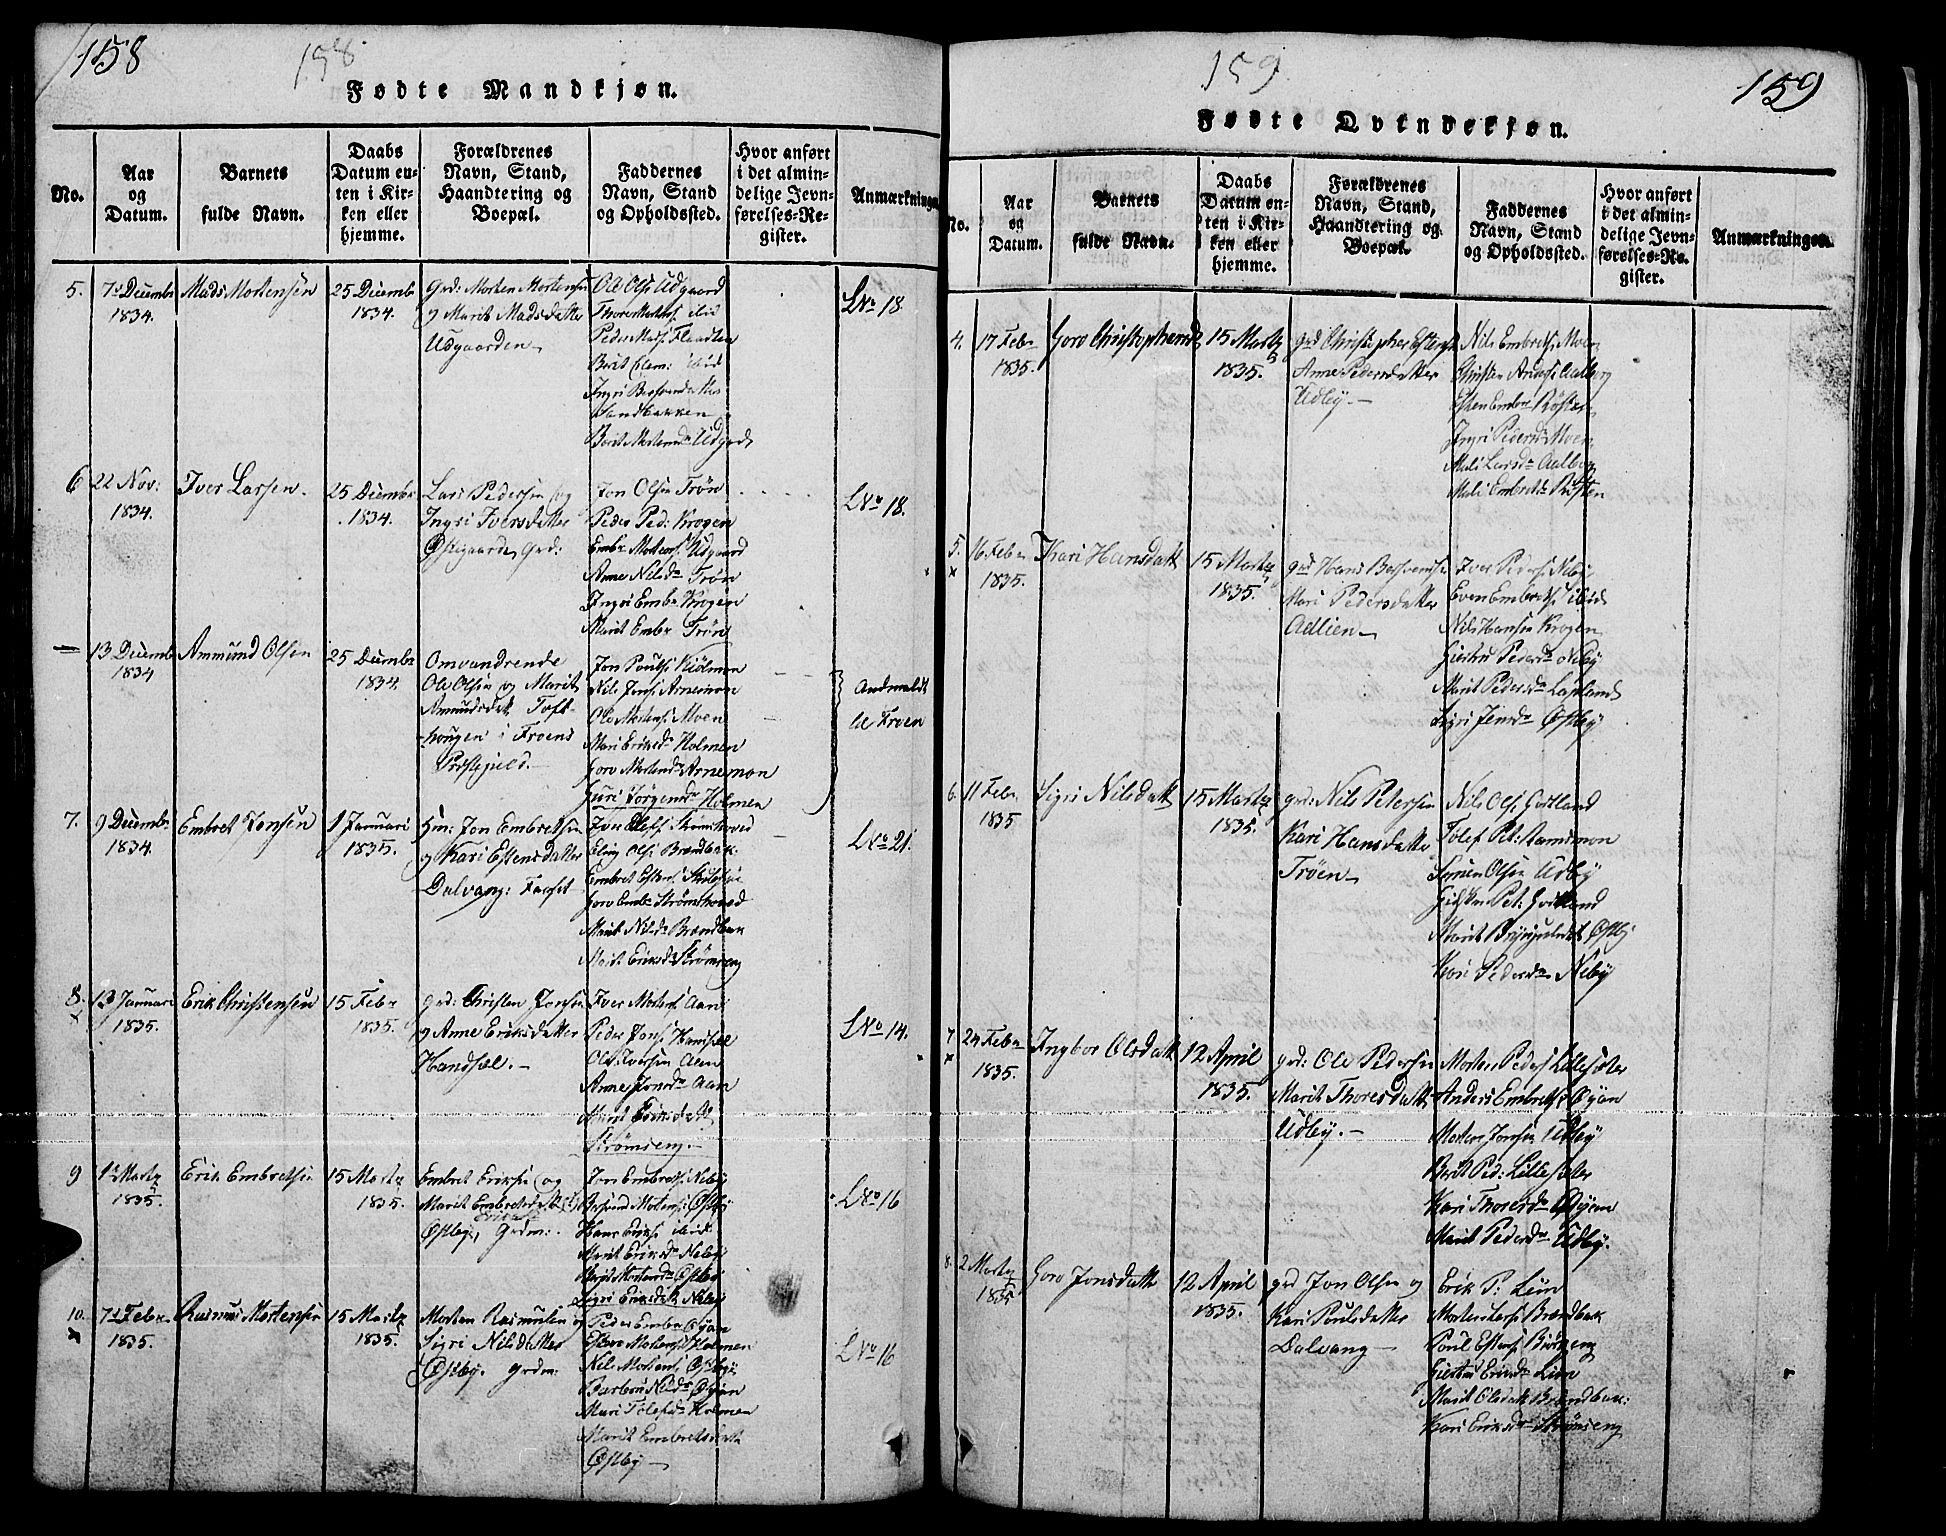 158
158
Fødte Mandkjøn.
No.
Aar
og
Datum.
Barnets
fulde Navn.
Daabs
Datum en-
ten i Kir-
ken eller
hjemme.
Forældrenes
Navn, Stand,
Haandtering og
Boepæl.
Faddernes
Navn, Stand
og Opholdssted.
Hvor anført
i det almin-
delige Jevn-
førelses-Re-
gister.
Anmærkninger
5.
7de Decembr
1834.
Mads Mortensen
25 Decemb
1834.
Grd: Morten Mortensen
og Marit Madsdatter
Udgaarden
Ole Ols: Udgaard
Thore Mortens: ibid
Peder Mads:
Berit Clem: ibid
Ingri
Sandbakken
Berit Mortensdr Udgrd
LNo 18.
6
22 Nov:
1834.
Iver Larsen.
25 Decembr
1834.
Lars Pedersen og
Ingri Iversdatter
Østgaarden Grd:
Jon Olsen Trøn
Peder Ped: Krogen
Embr Mortens: Udgaard
Anne Nilsdr Trøn
Ingri Embr Krogen
Marit Embr Trøn
LNo 18.
13 Decembr
1834
Ammund Olsen
25 Decembr
1834.
Omvandrende
Ole Olsen og Marit
Amundsdatt Toft-
hougen i Froens
Præstegield.
Jon Pouls: Kiølmon
Nils Jons: Arnemon
Ole Mortens: Moen
Mari Eriksdr Holmen
Goro Mortensdr Arnemon
Guri Jørgensdr Holmen
Andmeldt
til Froen
7.
9 Decembr
1834.
Embret Jonsen
1 Januari
1835.
Hm: Jon Embretsen
og Kari Estensdatter
Dalvang: Faaset
Iver Olufs: Strømshoved
Eling Ols: Brandbak:
Embret Estens:
Goro Embr Strømshoved
Marit Nilsdr Brandbak
Marit Eriksdr Strømseng
LNo 21.
8.
13 Januari
1835.
Erik Christensen
15 Febr
1835.
Grd: Christen Jonsen
og Anne Eriksdatter
Handsæl.
Iver Mortens: Aan
Peder Jons: Handsæl
Ole Iversen Aaen
Anne Jonsdr Aan
Marit Eriksdatt
Strømseng.
LNo 14.
9
1te Martz
1835.
Erik Embretsen
15 Martz
1835.
Embret Eriksen og
Marit Embretsdatt
Østby, Grdm:
Jon Embrets: Neby
Morten: Østby
Hans Eriks: ibid:
Marit Eriksdr Neby
Marit Mortensdr Østby
Sigri Eriksdatt Neby
LNo 16
10.
7de Febr
1835.
Rasmus Mortensen
15 Martz
1835.
Morten Rasmusen og
Sigri Nilsdatter
Østby. Grdm:
Peder Embr Øyan
Mortens: Holmen
Nils Mortens: Østby
Barbru Nilsdr Øyan
Mari Tolefsdr Holmen
Marit Embretsdatt
Østby
LNo 16
159.
159
Fødte Qvindekjøn.
No.
Aar
og
Datum.
Barnets
fulde Navn.
Daabs
Datum en-
ten i Kir-
ken eller
hjemme.
Forældrenes
Navn, Stand,
Haandtering og
Boepæl.
Faddernes
Navn, Stand
og Opholdssted.
Hvor anført
i det almin-
delige Jevn-
førelses-Re-
gister.
Anmærkninger.
4.
17 Febr
1835.
Goro Christophersd
15 Martz
1835.
Grd Christopher Estens:
Anne Pedersdatter
Udby.
Nils Embrets: Moen
Christen Arnes: Aalborg
Esten Embr Røsten
Ingri Pedersdr Moen
Mali Larsdr Aalborg
Mali Embretsdr Røsten
5.
16 Febr
1835.
Kari Hansdatt
15 Martz
1835.
Grd Hans
Mari Pedersdatter
Adlien
Iver Peders: Neby
Even Embrets: ibid
Nils Hansen Krogen
Giertru Pedersdr Neby
Marit Pedersdr Lapland
Sigri Jensdr Østby
6.
11 Febr.
1835
Sigri Nilsdatt
15 Martz
1835.
Grd: Nils Petersen
Kari Hansdatter
Trøen
Nils Ols: Godtland
Tolef Pet: Aamemon
Simen Olsen Udby
Pet: Godtland
Marit Brynjulsdatt Østby
Kari Pedersdr Neby
7
24 Febr
1835.
Ingbor Olsdatt
12 April
1835.
Grd: Ole Pedersen
Marit Thoresdatter
Udby.
Morten Peders: Lillesæter
Anders Embrets: Øyan
Morten Jonsen Udby
Berit Ped: Lillesæter
Kari Thoresdr Øyan
Marit Pedersdr Udby.
8.
2 Martz
1835
Goro Jonsdatt
12 April
1835.
Grd Jon Olsen og
Kari Poulsdatter
Dalvang
Erik P: Lien
Morten Lars: Brandbak
Poul Estens: Biørseng
Giertru Eriksdr Lien
Marit Olsdatt Brandbak:
Kari Eriksdr Strømseng